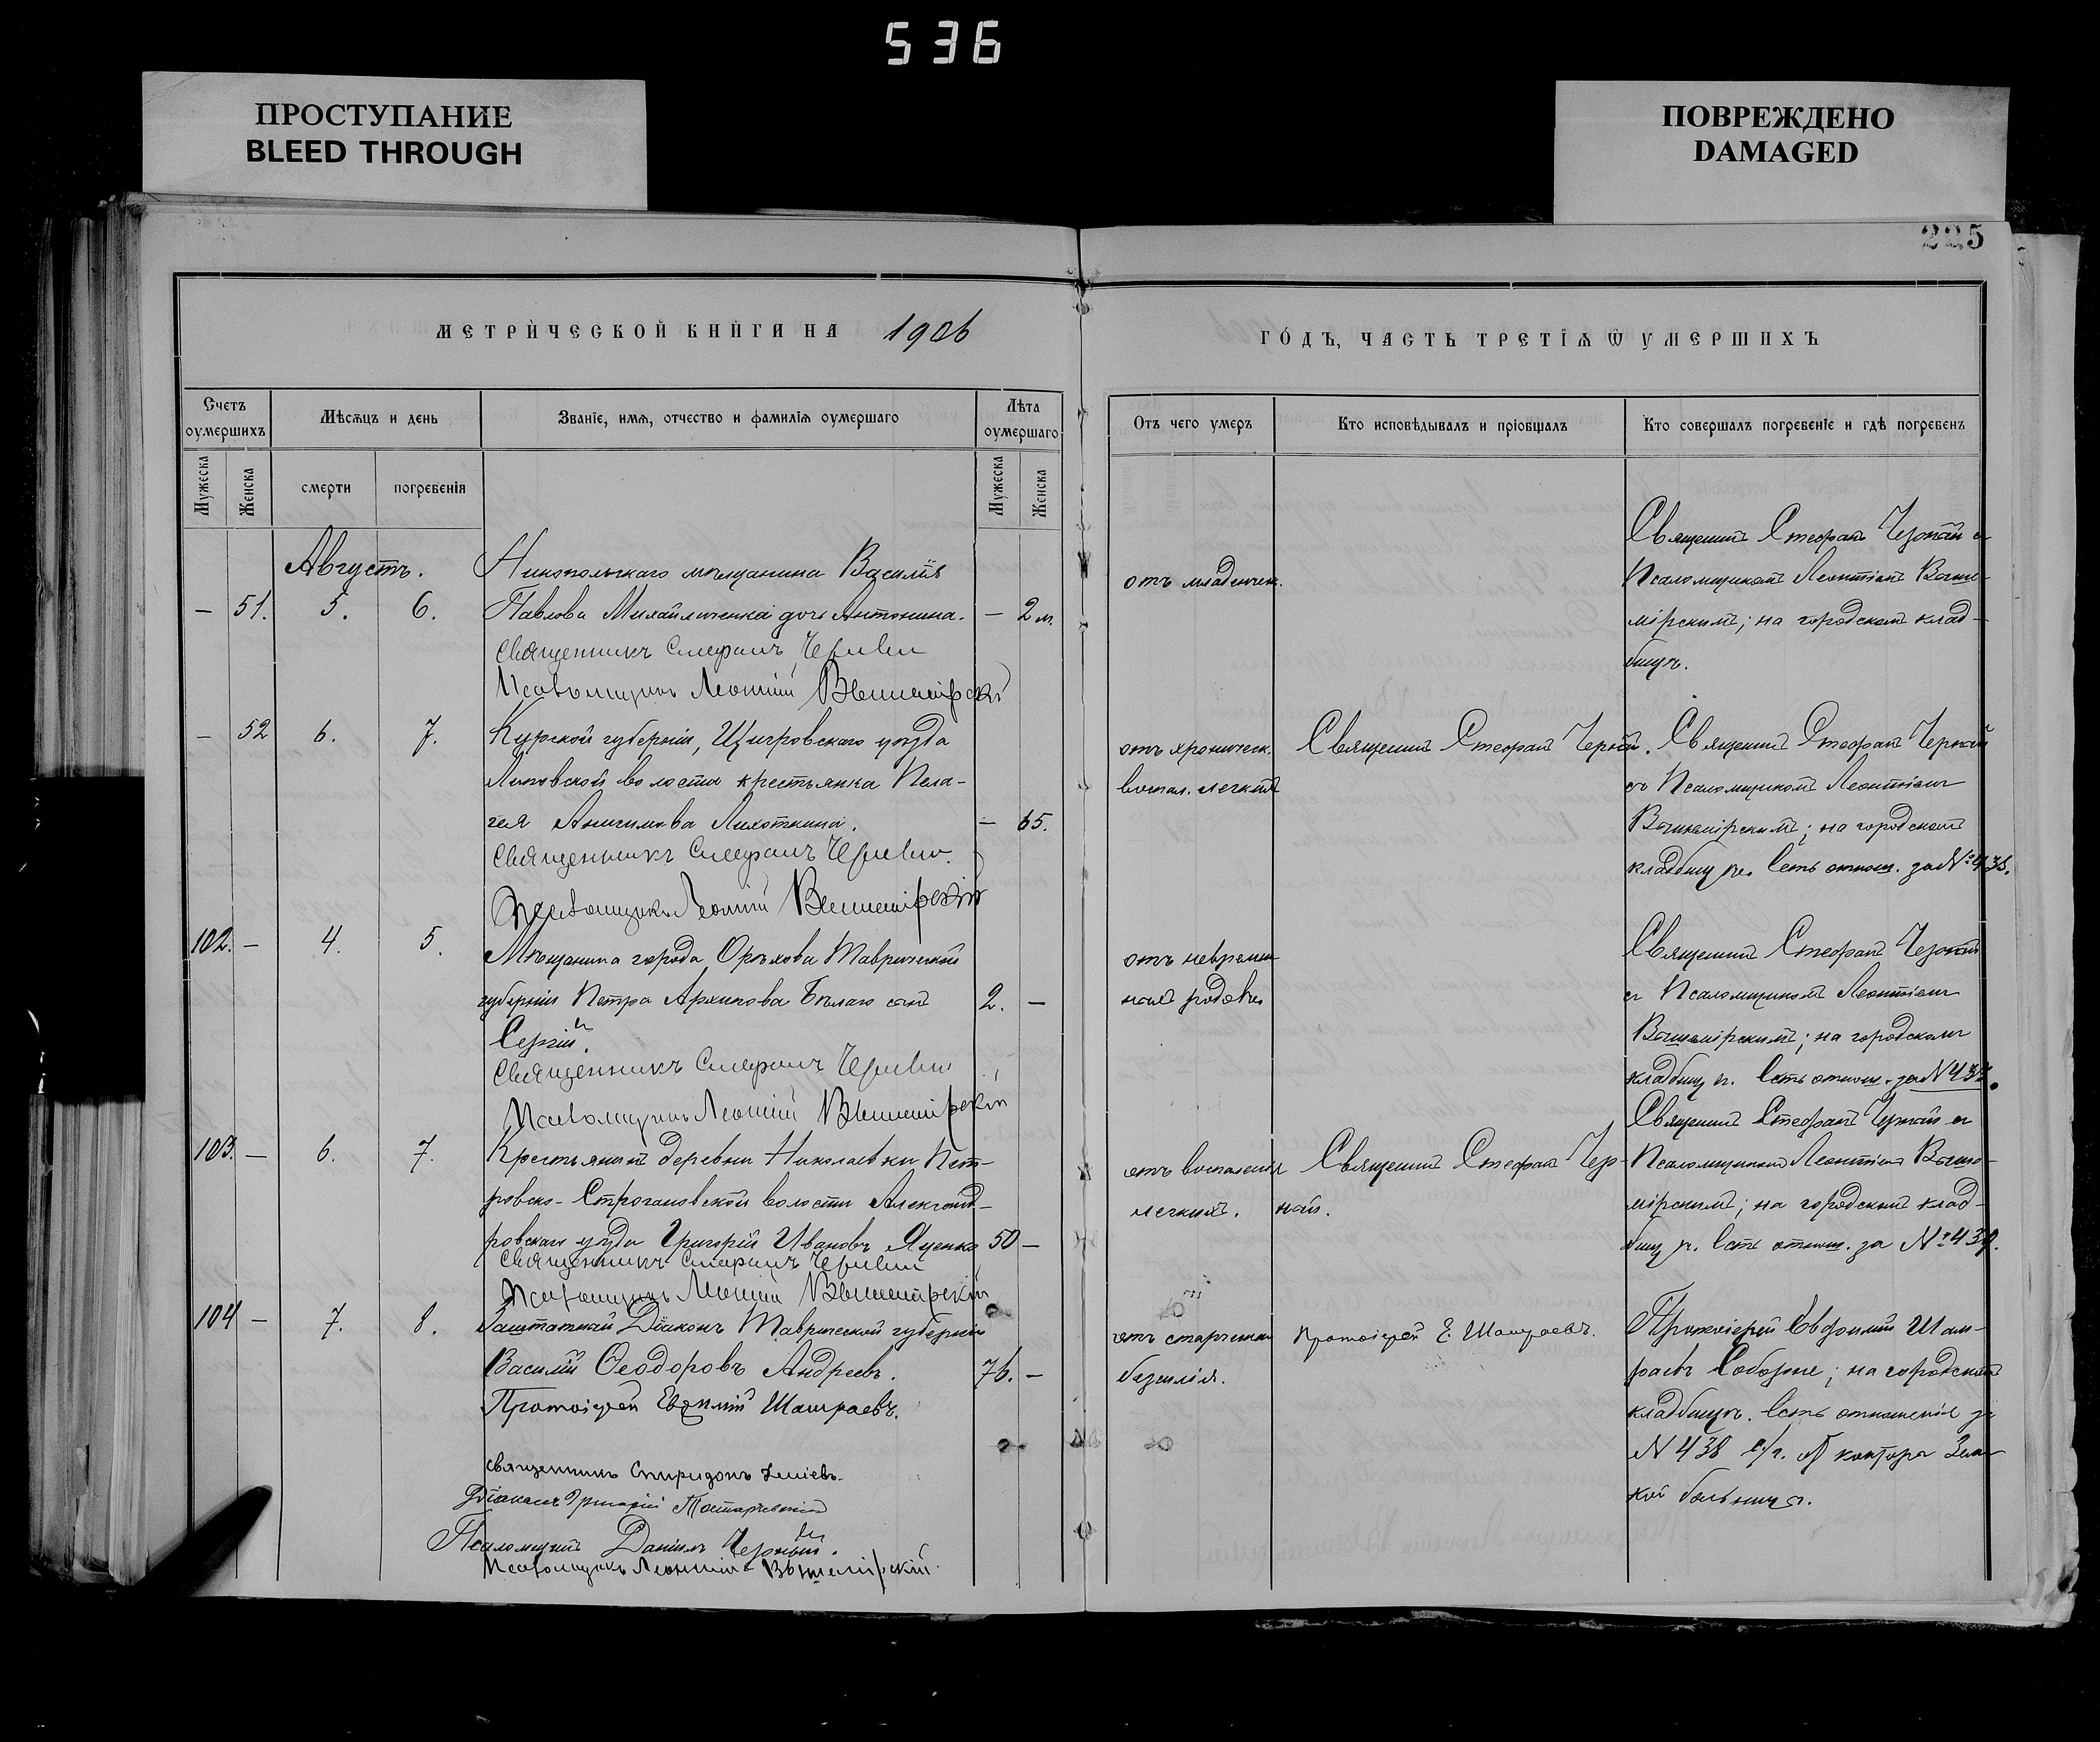 536
ПРОСТУПАНИЕ
BLEED THROUGH
ПОВРЕЖДЕНО
DAMAGED
225
МЕТРИЧЕСКОЙ КНИГИ НА 1906
ГОДЪ, ЧАСТЬ ТРЕТІЯ Ѿ УМЕРШИХЪ
Счетъ оумершихъ
Мѣсяцъ и день
Званіе, имя, отчество и фамилія оумершаго
Лѣта оумершаго
Отъ чего умеръ
Кто исповѣдывалъ и пріобщалъ
Кто совершалъ погребеніе и гдѣ погребенъ
Мужеска
Женска
смерти
погребенія
Мужеска
Женска
Августъ.
— 51. 5. 6.
Никопольскаго мѣщанина Василія
Павлова Михайличенка дочь Антонина. — 2 м.
Священникъ Стефанъ
Псаломщикъ Леонтій Вышемірскій
отъ младенчес.
Священникъ Стефанъ Черный съ
Псаломщикомъ Леонтіемъ Выше-
мірскимъ; на городскомъ клад-
бищѣ.
— 52 6. 7.
Курской губерніи, Щигровскаго уѣзда
Липовской волости крестьянка Пела-
гея Анисимова Лихоткина. — 65.
Священникъ Стефанъ
Псаломщикъ Леонтій Вышемірскій
отъ хроническ.
воспал. легкихъ
Священникъ Стефанъ Черный.
Священникъ Стефанъ Черный
съ Псаломщикомъ Леонтіемъ
Вышемірскимъ; на городскомъ
кладбищѣ. Есть отнош. за №
102. — 4. 5.
Мѣщанина города Орѣхова Таврической
губерніи Петра Архипова Бѣлаго сынъ 2. —
Сергій.
Священникъ Стефанъ
Псаломщикъ Леонтій Вышемірскій
отъ невремен
ныхъ родовъ
Священникъ Стефанъ Черный
съ Псаломщикомъ Леонтіемъ
Вышемірскимъ; на городскомъ
кладбищѣ. Есть отнош. за №
103. — 6. 7.
Крестьянинъ деревни Николаевки Пет-
ровско-Строгановской волости Александ-
ровскаго уѣзда Григорій Ивановъ Яценко 50 —
Священникъ Стефанъ
Псаломщикъ Леонтій Вышемірскій
отъ воспаленія
легкихъ.
Священникъ Стефанъ Чер-
ный.
Священникъ Стефанъ Черный съ
Псаломщикомъ Леонтіемъ Выше-
мірскимъ; на городскомъ клад-
бищѣ. Есть отнош. за №
104 — 7. 8.
Заштатный Діаконъ Таврической губерніи
Василій Ѳеодоровъ Андреевъ. 76. —
Протоіерей Евфимій
отъ старческаго
безсилія.
Протоіерей Е.
Протоіерей Евфимій
Соборне; на городскомъ
кладбищѣ. Есть отношеніе за
№ 438 с/г. контора Земс
кой больницы.
Священникъ Спиридонъ
Діаконъ Григорій
Псаломщикъ Даніилъ Черный.
Псаломщикъ Леонтій Вышемірскій.